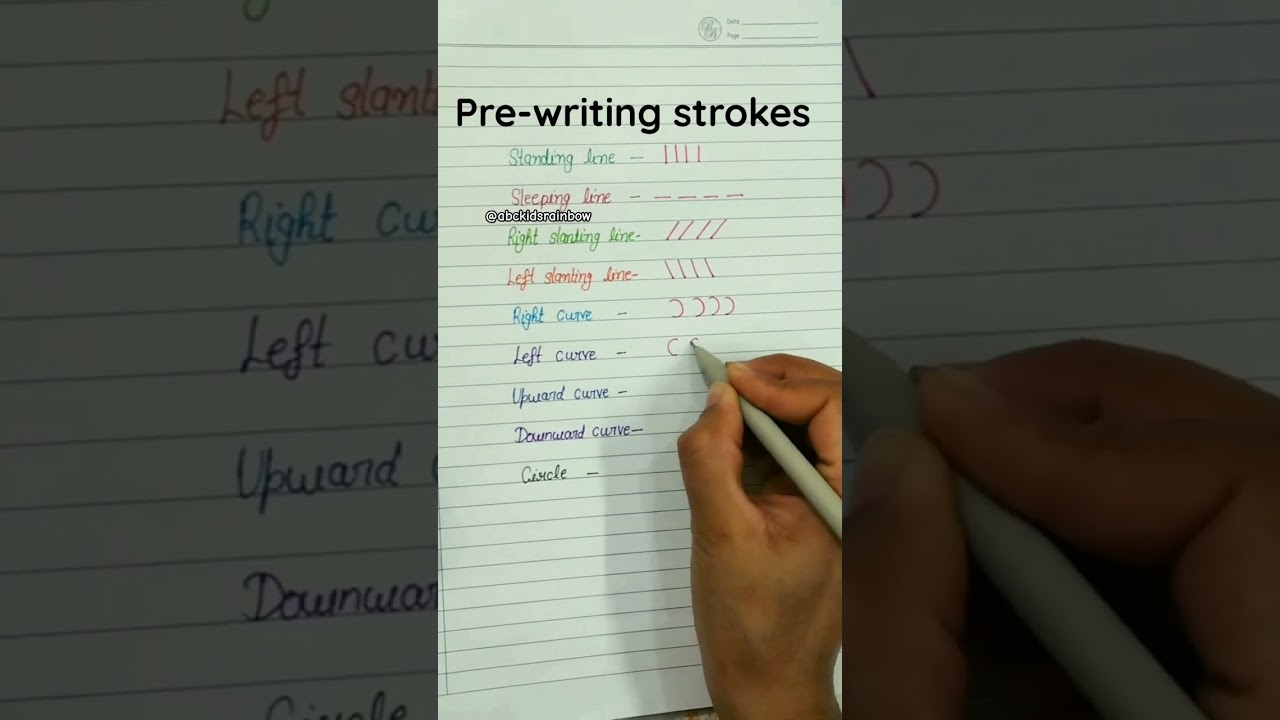 Date
Page
Pre-writing strokes
Standing line - ||||
Sleeping line - — — — —
@abckidsrainbow
Right slanting line- ////
Left slanting line- \\\\
Right curve - ))))
Left curve - ( (
Upward curve -
Downward curve-
Circle -
Left slant
Right cu
Left cu
Upward
Downwar
Circle